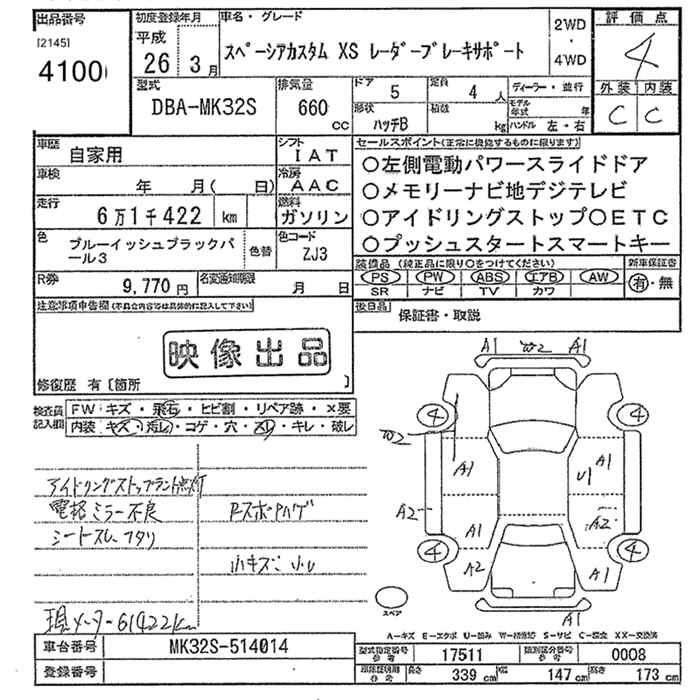 出品番号
[2145]
4100
初度登録年月
平成
26 3月
車名・グレード
スペーシアカスタム XS レーダーブレーキサポート
2WD
・
4WD
評価点
4
外装 内装
C C
型式
DBA-MK32S
排気量
660
cc
ドア 5
定員 4 人
ディーラー・並行
形状 ハッチB
積載 kg
モデル年式 年
ハンドル 左・右
車歴
自家用
シフト
IAT
車検
年 月( 日)
冷房
AAC
走行
6万1千422 km
燃料
ガソリン
色
ブルーイッシュブラックパール3
色替
色コード
ZJ3
R券
9,770円
名変通知期限
月 日
セールスポイント(正常に機能するものに限ります)
○左側電動パワースライドドア
○メモリーナビ地デジテレビ
○アイドリングストップ○ETC
○プッシュスタートスマートキー
装備品 (純正品に限り○をつけてください)
PS PW ABS エアB AW
SR ナビ TV カワ
新車保証書
有・無
後日品
保証書・取説
注意事項申告欄(不具合内容等は具体的に記入して下さい)
映像出品
修復歴 有〔箇所 〕
検査員記入欄
FW キズ・飛石・ヒビ割・リペア跡・×要
内装 キズ・汚レ・コゲ・穴・スレ・キレ・破レ
アイドリングストップランプ点灯
電格ミラー不良
シートスレ フタリ
小キズ 小U
現メーター61422km
A1 W2 A1
4 4
W2
A1 A1
U1
A2 A2
A1
4 4
A2 A1
A1
スペア
A-キズ E-エクボ U-凹み W-補修跡 S-サビ C-腐食 XX-交換済
車台番号
MK32S-514014
登録番号
型式指定番号 参考
17511
類別区分番号 参考
0008
車検証明期 参考
長さ 339 cm
幅 147 cm
高さ 173 cm